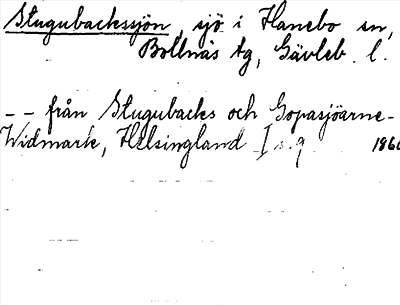 Stugubackssjön, sjö i Hanebo sn,
Bollnäs tg, Gävleb. l.
- - från Stugubacks och Gopasjöarne -
Widmark, Helsingland I s. 9 1860